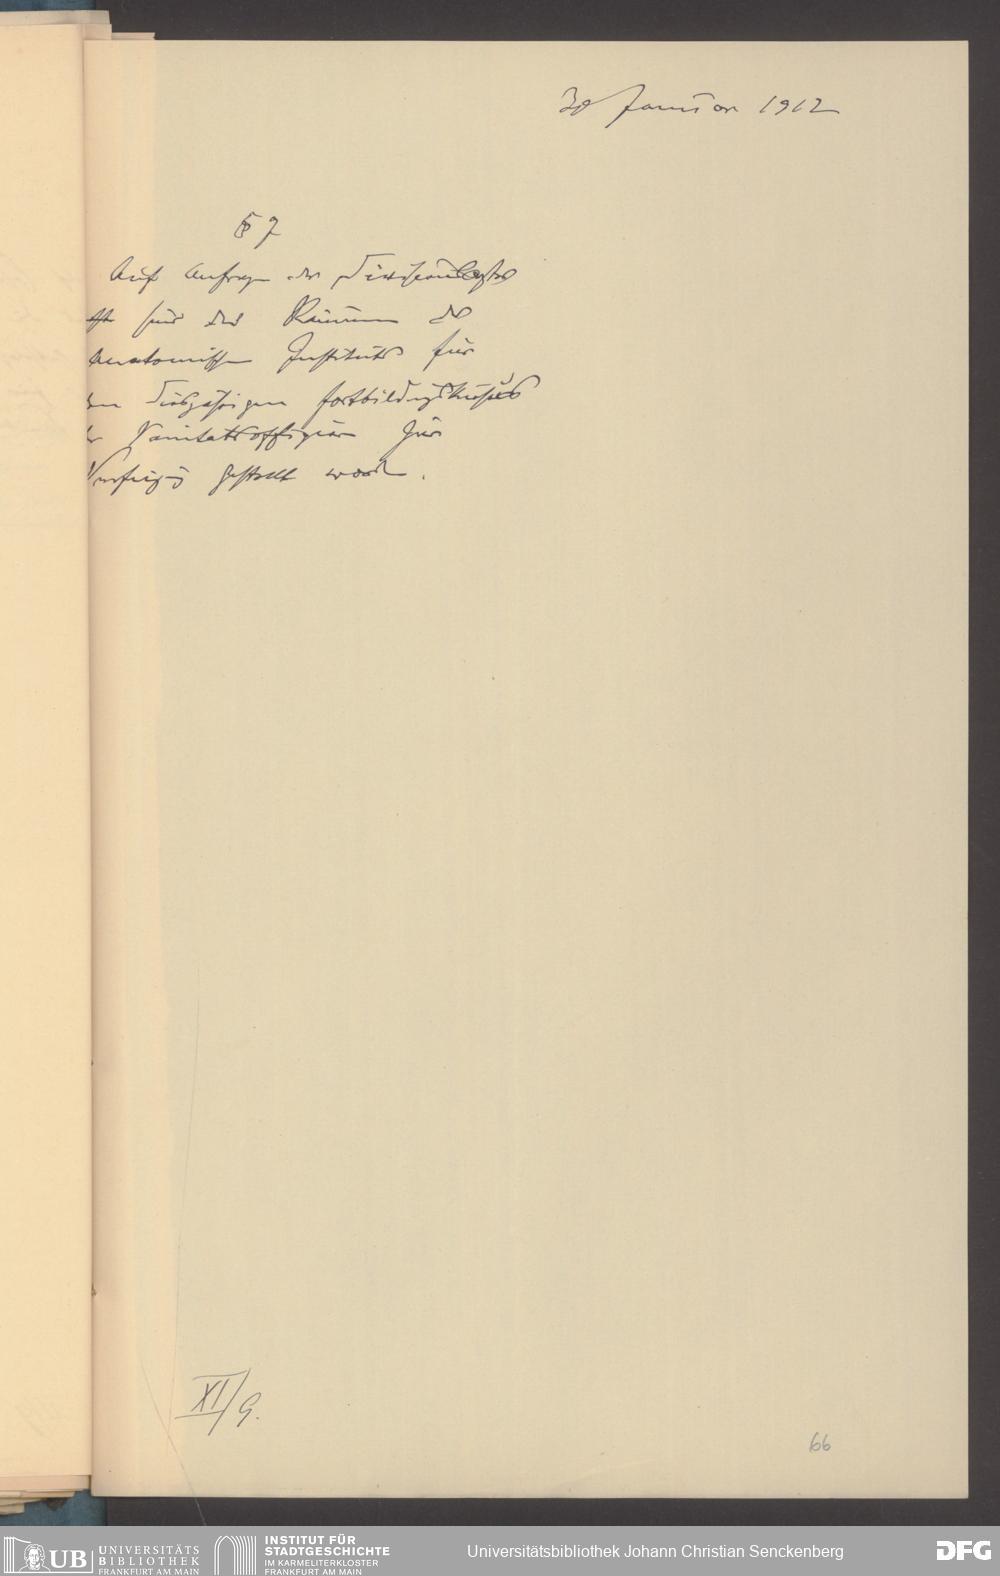 30 Januar 1912
§ 7
Auf Anfrage des Divisionsarztes
sind die Räume des
Anatomischen Instituts für
den diesjährigen Fortbildungskursus
der Sanitätsoffiziere zur
Verfügung gestellt worden.
XI/9.
66
UB UNIVERSITÄTS
BIBLIOTHEK
FRANKFURT AM MAIN
INSTITUT FÜR
STADTGESCHICHTE
IM KARMELITERKLOSTER
FRANKFURT AM MAIN
Universitätsbibliothek Johann Christian Senckenberg
DFG